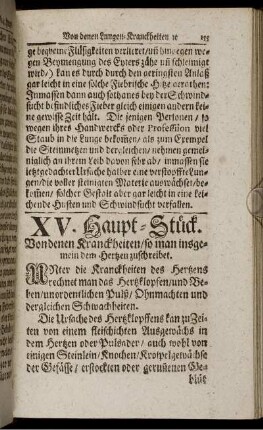 Von denen Lungen-Kranckheiten ꝛc 155
ge bequeme Flüssigkeiten verlieret/uñ hingegen we-
gen Beymengung des Eyters zähe uñ schleimigt
wird/) kan es durch durch den geringsten Anlaß
gar leicht in eine solche Fiebrische Hitze gerathen:
Inmassen dann auch sothanes bey der Schwind-
sucht befindliches Fieber gleich einigen andern kei-
ne gewisse Zeit hält. Die jenigen Personen / so
wegen ihres Handwercks oder Profession viel
Staub in die Lunge bekom̃en/ als zum Exempel
die Steinmetzen und dergleichen/ nehmen gemei-
niglich an ihrem Leib davon sehr ab/ inmassen sie
ietzgedachter Ursache halber eine verstopffte Lun-
gen/die voller steinigten Materie auswächset/be-
kom̃en/ solcher Gestalt aber gar leicht in eine kei-
chende Husten und Schwindsucht verfallen.
XV. Haupt-Stück.
Von denen Kranckheiten/so man insge-
mein dem Hertzen zuschreibet.
UNter die Kranckheiten des Hertzens
rechnet man das Hertzklopfen/und Be-
ben/unordentlichen Pulß/ Ohnmachten und
dergleichen Schwachheiten.
Die Ursache des Hertzklopffens kan zu Zei-
ten von einem fleischichten Ausgewächs in
dem Hertzen oder Pulsader/ auch wohl von
einigen Steinlein/ Knochen/ Krospelgewächse
der Gefässe/ erstockten oder gerunnenen Ge-
blüt